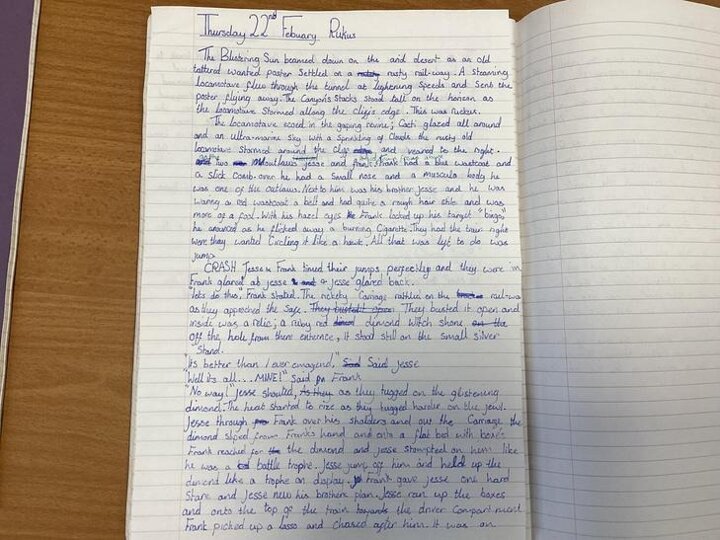 Thursday 22nd Febuary Rukus
The Blistering Sun beamed down on the arid desert as an old
tattered wanted poster Settled on a rusty rail-way. A steaming
locomotave flew through the tunnel at lightening speeds and Sent the
poster flying away. The Canyon's Stacks stood tall on the horizon as
the locomotave Stormed allong the clif's edge. This was ruckus.
The locomotave scored in the gaping ravine; Cacti glazed all around
and an ultra-marine Sky with a Sprinkling of Clouds the rusty old
locomotave Stormed around the clif and veared to the right...
two outlaws Jesse and Frank. Frank had a blue wastcoat and
a slick Comb-over he had a Small nose and a musculo body he
was one of the outlaws. Next to him was his brother Jesse and he was
waring a red wastcoat a belt and had quite a rough hair stile and was
more of a fool. With his hazel eyes Frank locked up his target "bingo"
he snarced as he flicked away a burning Cigarette. They had the train right
were they wanted Circling it like a hawk. All that was left to do was
jump
CRASH Jesse & Frank timed their jumps perfectley and they were in
Frank glared at jesse & jesse glared back.
"lets do this", Frank stated. The rickety Carriage rattled on the rail-way
as they appreched the Safe. They busted it open They busted it open and
inside was a relic; a ruby red dimond Witch shone
off the hole from there entrence, it stood still on the small silver
Stand.
"its better than I ever emagend," Said Jesse
"Well its all... MINE!" Said Frank
"No way!" Jesse shouted, as they tugged on the glistening
dimond. The heat started to rize as they tugged harder on the jewl.
Jesse through Frank over his sholders and out the Carriage the
dimond sliped from Frank's hand and onto a flat bed with boxes
Frank reached for the dimond and Jesse stompted on him like
he was a battle trophe. Jesse jump off him and held up the
dimond like a trophe on display. Frank gave jesse one hard
Stare and Jesse new his brothers plan. Jesse ran up the boxes
and onto the top of the train towards the driver Compartment
Frank picked up a lasso and chased after him. It was on